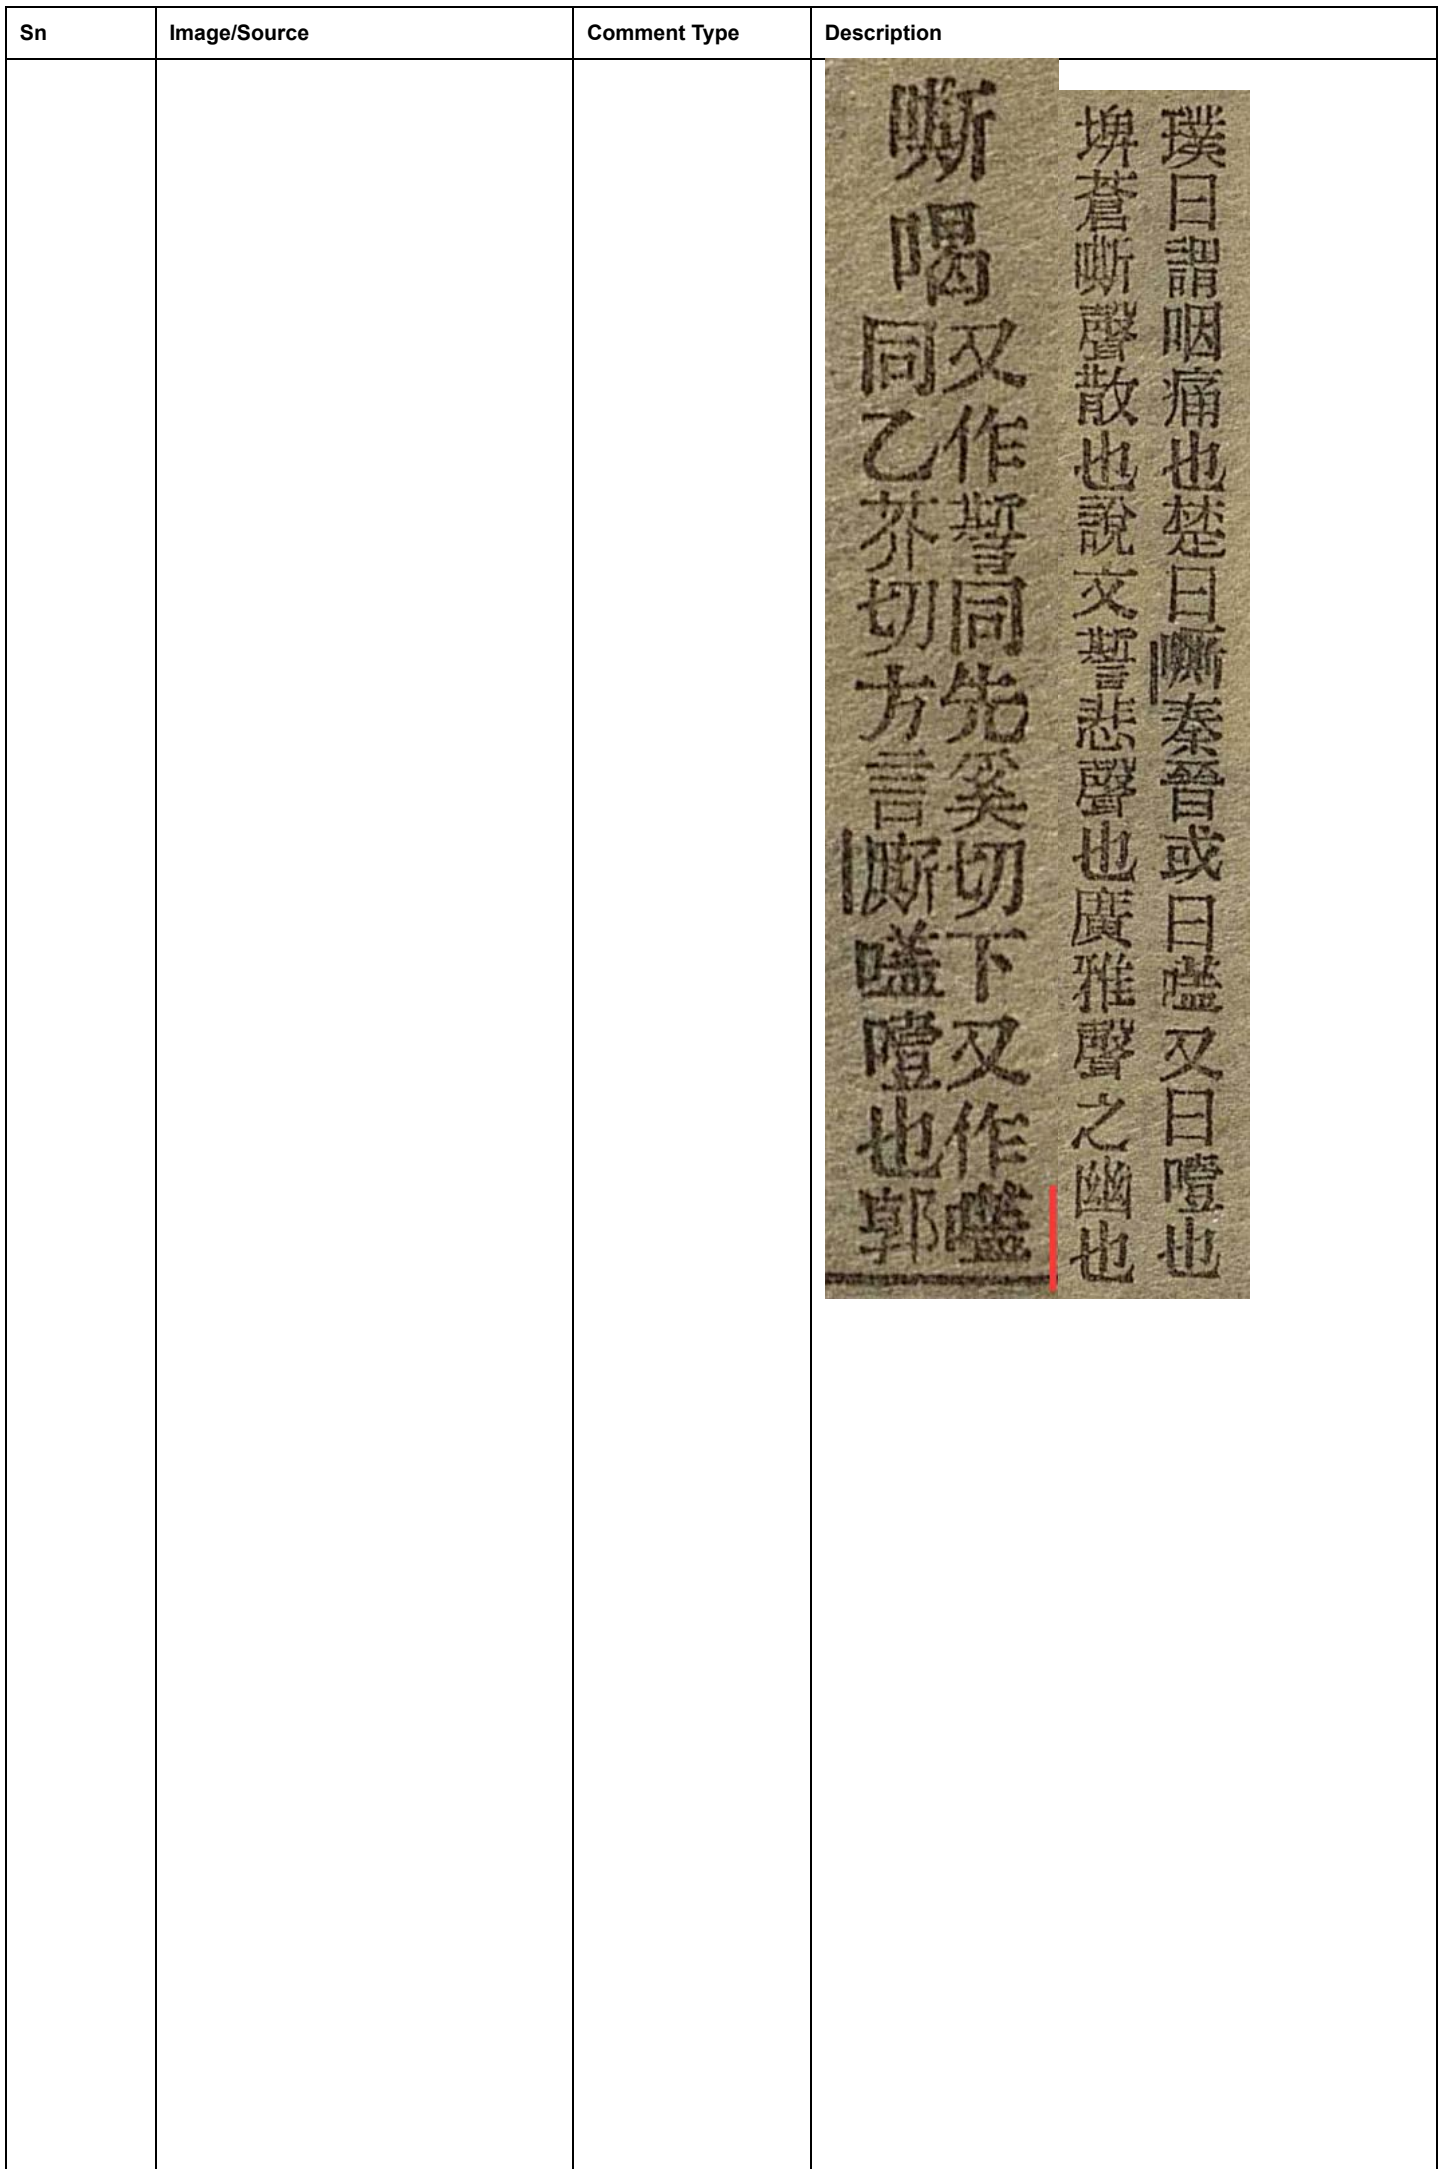 Sn Image/Source Comment Type Description
嘶喝
又作同先奚切下又作
同乙芥切方言噎也郭
璞曰謂咽痛也楚曰秦晉或曰又曰噎也
埤蒼嘶聲散也說文悲聲也廣雅聲之幽也